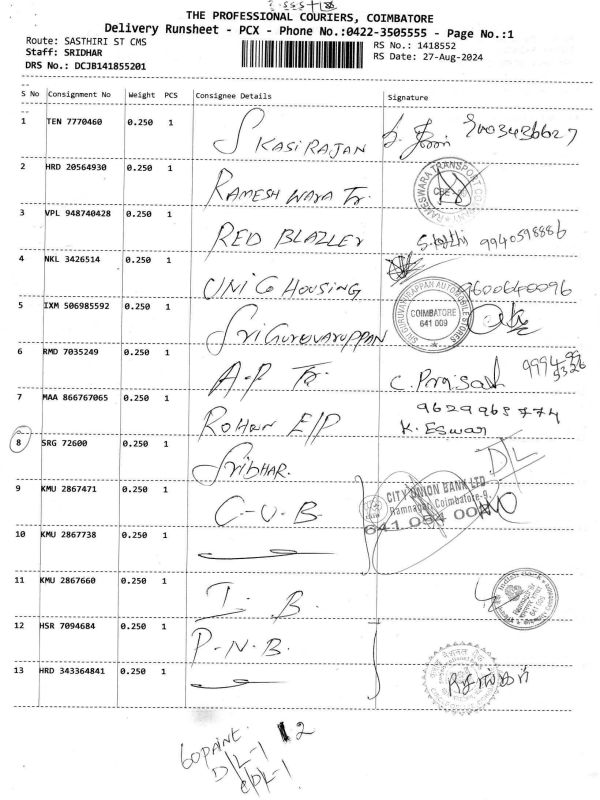 THE PROFESSIONAL COURIERS, COIMBATORE
Delivery Runsheet - PCX - Phone No.:0422-3505555 - Page No.:1
Route: SASTHIRI ST CMS
Staff: SRIDHAR
DRS No.: DCJB141855201
RS No.: 1418552
RS Date: 27-Aug-2024
S No Consignment No Weight PCS Consignee Details Signature
1 TEN 7770460 0.250 1 S KASIRAJAN
2 HRD 20564930 0.250 1 RAMESHWARA Tr. RAMESWARA TRANSPORT CBE
3 VPL 948740428 0.250 1 RED BLAZLEY 9940598886
4 NKL 3426514 0.250 1 UNIQ HOUSING 9600640096
5 IXM 506985592 0.250 1 SriGuruvaruppan SRI GURUVAYURAPPAN AUTOMOBILE STORES COIMBATORE 641 009
6 RMD 7035249 0.250 1 A.P Tr. C. Prasath
7 MAA 866767065 1 0.250 ROHAN E/P 9629968774
K. Eswar
8 SRG 72600 0.250 1 Sridhar. DL
9 KMU 2867471 0.250 1 C-U-B CITY UNION BANK LTD.
Ramnagar, Coimbatore-9.
641 054 00
10 KMU 2867738 0.250 1
11 KMU 2867660 0.250 1 I. B.
12 HSR 7094684 0.250 1 P-N-B.
13 HRD 343364841 0.250 1
12
DL-1